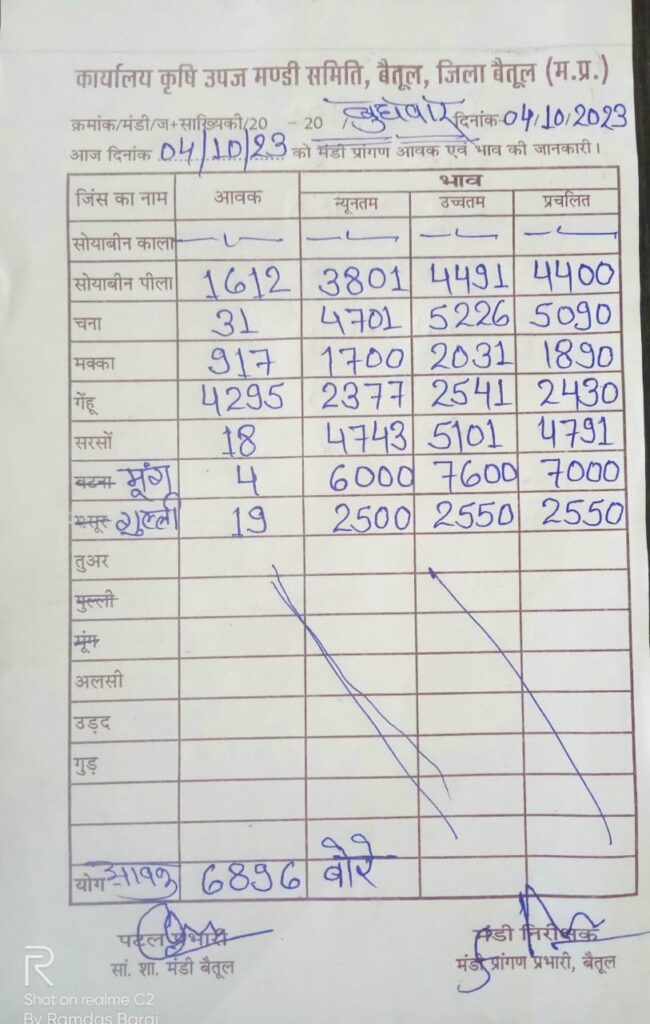 कार्यालय कृषि उपज मण्डी समिति, बैतूल, जिला बैतूल (म.प्र.)
क्रमांक/मंडी/ज+साख्यिकी/20 - 20 / बुधवार दिनांक 04/10/2023
आज दिनांक 04/10/23 को मंडी प्रांगण आवक एवं भाव की जानकारी।
जिंस का नाम आवक भाव
न्यूनतम उच्चतम प्रचलित
सोयाबीन काला
सोयाबीन पीला 1612 3801 4491 4400
चना 31 4701 5226 5090
मक्का 917 1700 2031 1890
गेंहू 4295 2377 2541 2430
सरसों 18 4743 5101 4791
बटना मूंग 4 6000 7600 7000
मसूर गुल्ली 19 2500 2550 2550
तुअर
गुल्ली
मूंग
अलसी
उड़द
गुड़
योग आवक 6896 बोरे
पटल प्रभारी मंडी निरीक्षक
सां. शा. मंडी बैतूल मंडी प्रांगण प्रभारी, बैतूल
R
Shot on realme C2
By Ramdas Barai